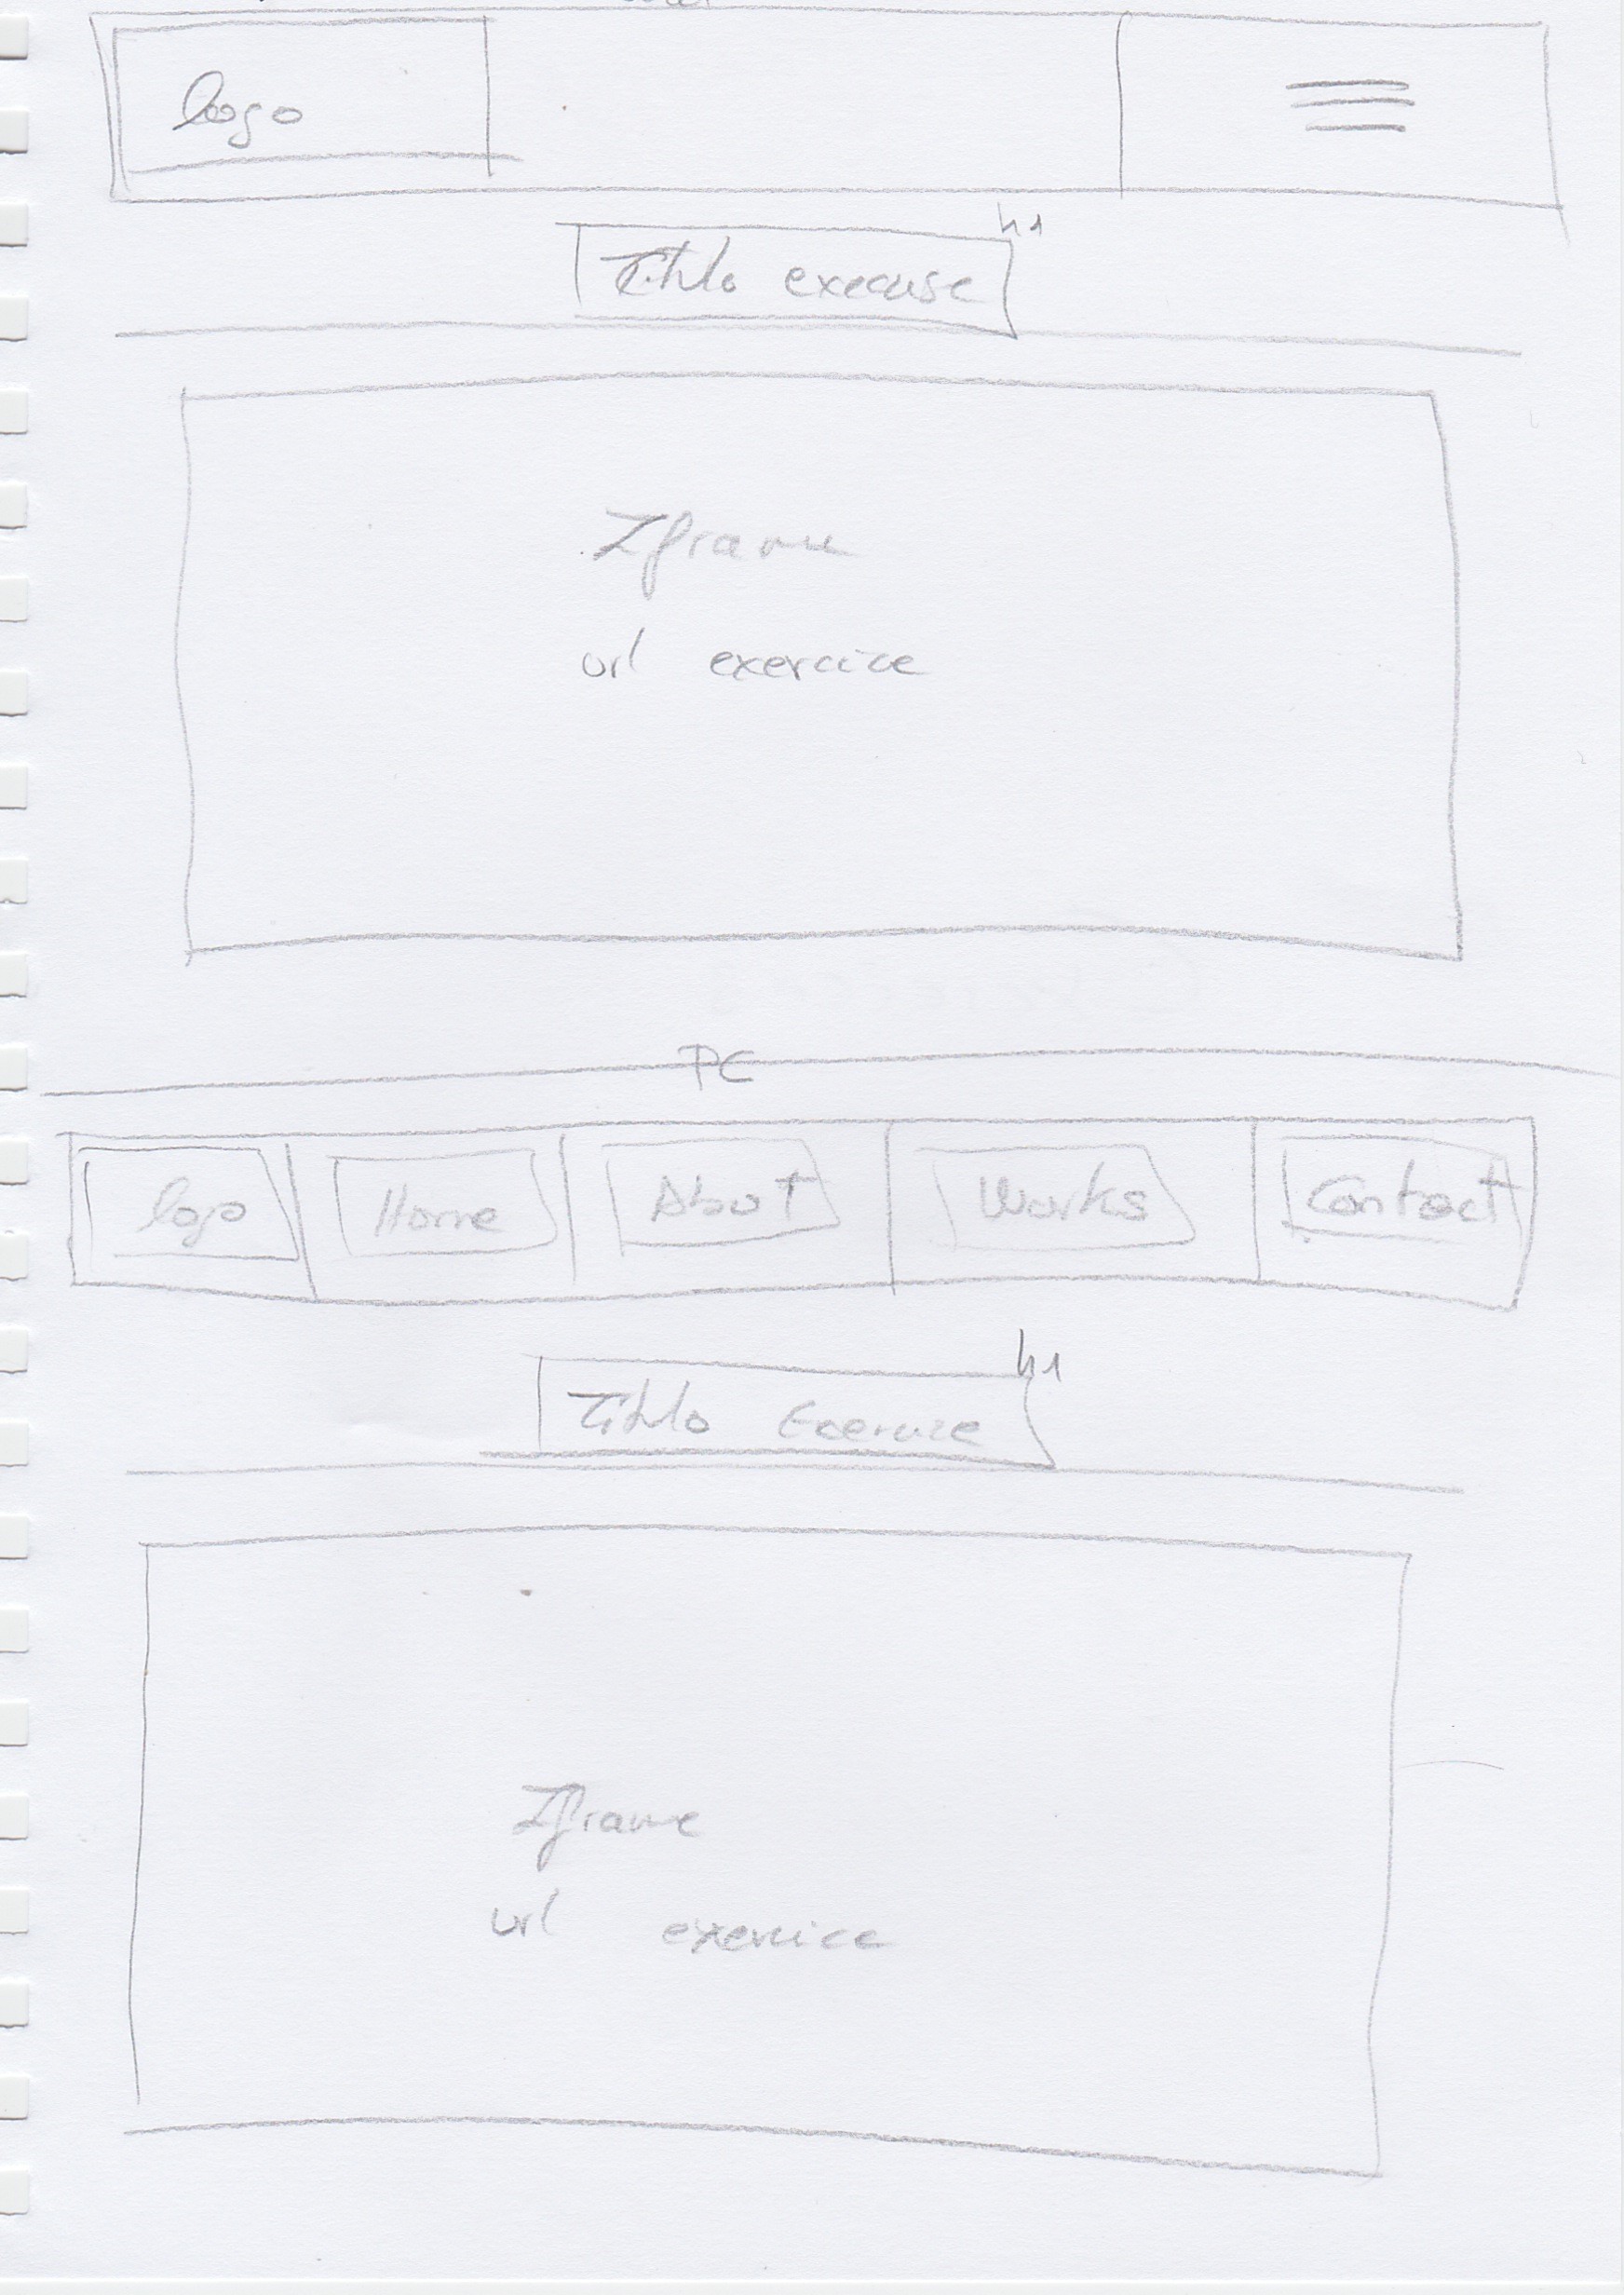 logo
h1
Titulo execuse
Iframe
url exercice
PC
logo Home About Works Contact
h1
Titulo Exercice
Iframe
url exercice